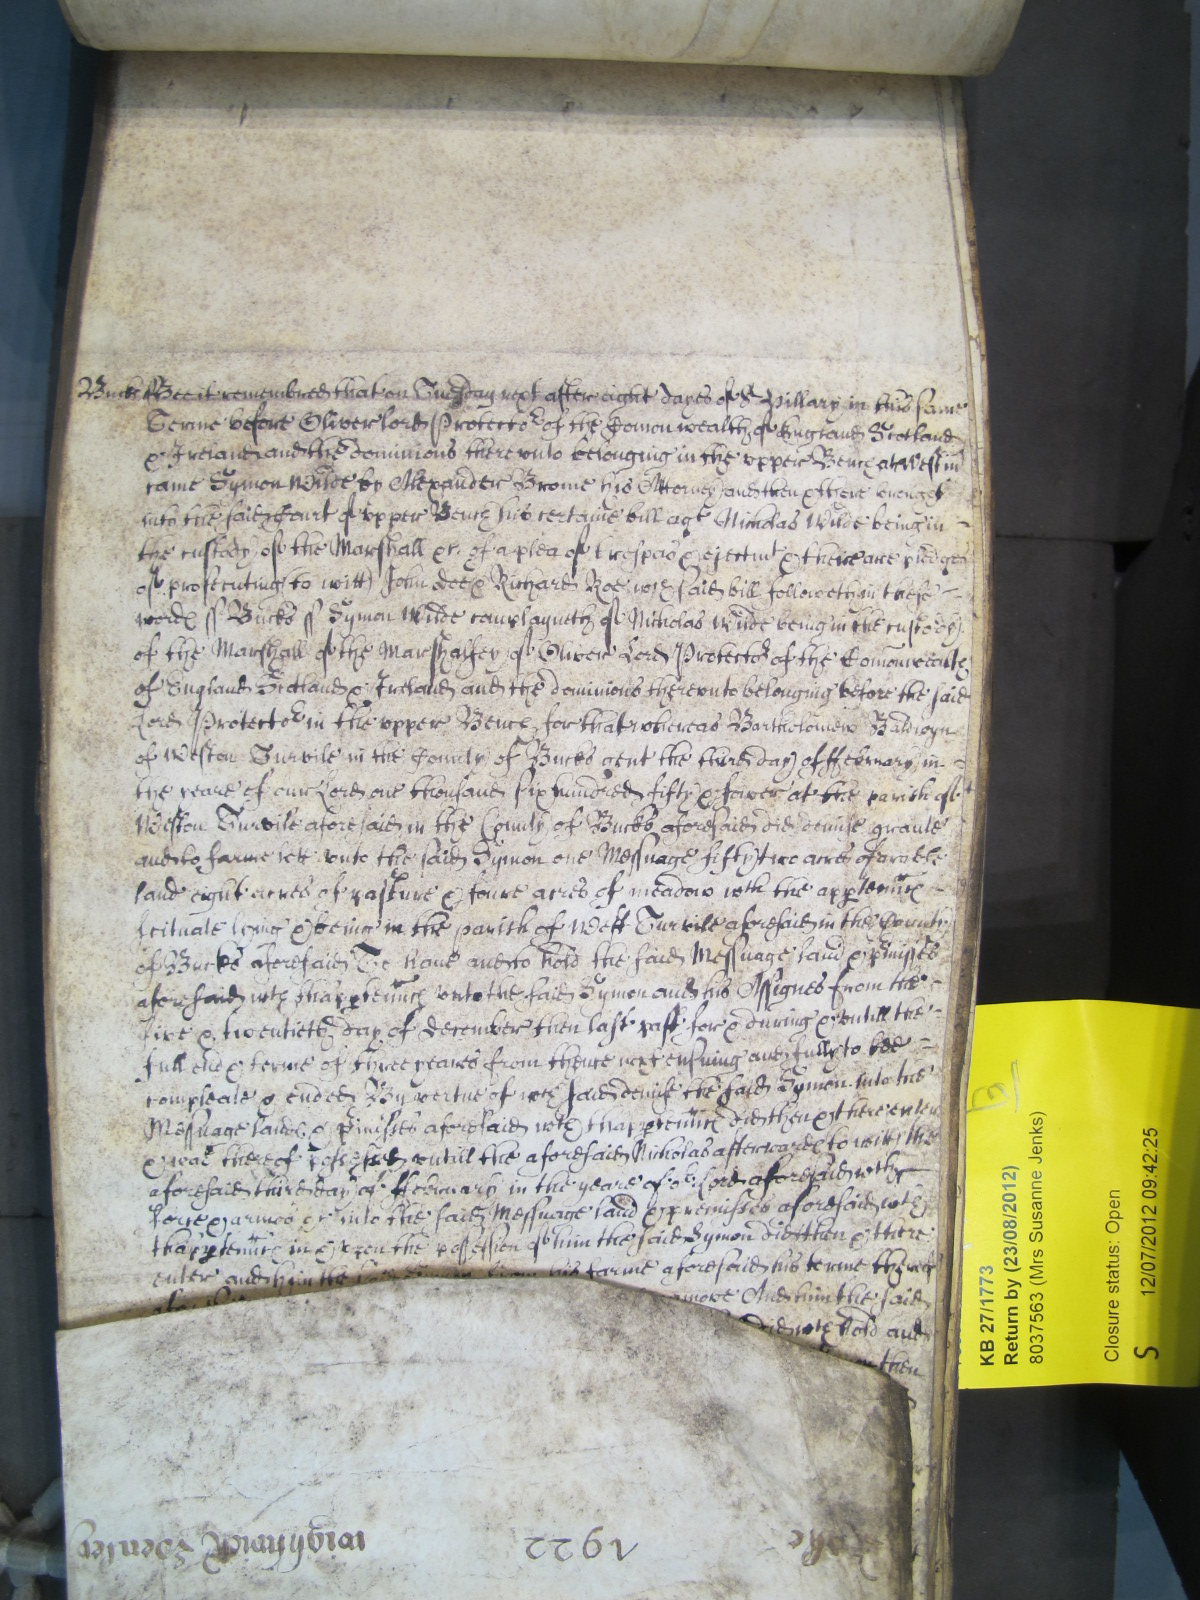 Bucks ss Bee it remembred that on Tuesday next after eight dayes of St Hillary in this same
Terme before Oliver Lord Protector of the Comonwealth of England Scotland
& Ireland and the dominions thereunto belonging in the upper Bench at Westm
came Symon Wilde by Alexander Brome his Attorney and then & there brought
into the said Court of upper Bench his certaine bill agt Nicholas Wilde being in
the custody of the Marshall &c of a plea of trespas & ejectmt & there are pledges
of prosecuting to witt John Doe & Richard Roe wch said bill followeth in these
words ss Bucks ss Symon Wilde complayneth of Nicholas Wilde being in the custody
of the Marshall of the Marshalsey of Oliver Lord Protector of the Comonwealth
of England Scotland & Ireland and the dominions thereunto belonging before the said
Lord Protector in the upper Bench for that whereas Bartholomew Baldwyn
of Weston Turvile in the County of Bucks gent the third day of ffebruary in
the yeare of our Lord one thousand six hundred fifty & fower at the parish of
Weston Turvile aforesaid in the County of Bucks aforesaid did demise graunte
and to farme lett unto the said Symon one Messuage fifty two acres of arrable
land eight acres of pasture & foure acres of meadow wth the apptenncs
scituate lying & being in the parish of West Turvile aforesaid in the County
of Bucks aforesaid To have and to hold the said Messuage land & pmisses
aforesaid wth thapptenncs unto the said Symon and his Assignes from the
sixe & twentieth day of December then last past for & during & untill the
full end & terme of three yeares from thence next ensuing and fully to bee
compleate & ended By vertue of wch said demise the said Symon into the
Messuage land & pmisses aforesaid wth thapptenncs did then & there enter
& was thereof possessed untill the aforesaid Nicholas afterwards to witt the
aforesaid third day of ffebruary in the yeare of or Lord aforesaid wth
force & armes &c into the said Messuage land & premisses aforesaid wth
thapptenncs in & upon the possession of him the said Symon did then & there
enter and him the said Symon from his farme aforesaid his terme thereof
more And him the said
did wth hold and
then
Wightwick Henley
1922
KB 27/1773
Return by (23/08/2012)
8037563 (Mrs Susanne Jenks)
Closure status: Open
S 12/07/2012 09:42:25